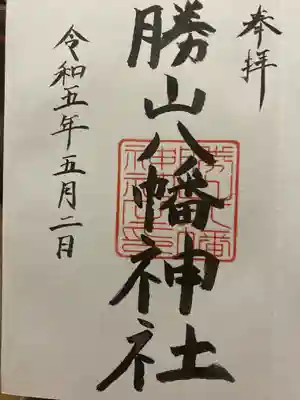 奉拝
勝山八幡神社
令和五年五月二日